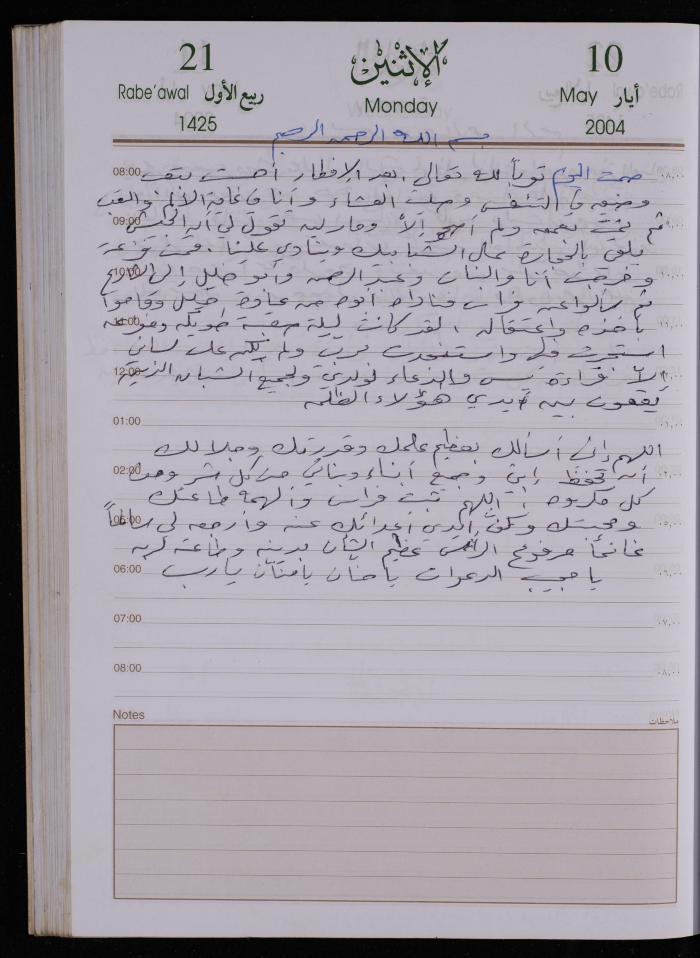 21 الإثنين 10
Rabe'awal ربيع الأول Monday May أيار
1425 2004
بسم الله الرحمن الرحيم
08:00 صمت اليوم توباً لله تعالى بعد الإفطار أحسست بتعب
وضيق في التنفس وصليت العشاء وأنا في غاية الألم والتعب
09:00 ثم نمت بعمق ولم أصح إلا ومارلين تقول لي أن الجيش
يلقي بالحجارة على الشبابيك وينادي علينا فقمت فزعة
10:00 وخرجت أنا والبنات وعبد الرحمن وأبو خليل إلى الخارج
ثم سألوا عن فراس فناداه أبوه من عند خليل وقاموا
11:00 بأخذه واعتقاله لقد كانت ليلة صعبة طويلة ومؤلمة
استجرت فيها واستنجدت بربي ولم يكن على لساني
12:00 إلا قراءة يس والدعاء لولدي ولجميع الشبان الذين
يقعون بين أيدي هؤلاء الظلمة
01:00
اللهم إني أسألك بعظيم علمك وقدرتك وجلالك
02:00 أن تحفظ ابني وجميع أبناء وبناتي من كل شر ومن
كل مكروه اللهم ثبت فراس وألهمه طاعتك
05:00 ومحبتك وكف أيدي أعدائك عنه وأرجعه لي سالماً
غانماً مرفوع الرأس عظيم الشأن بدينه وطاعته لربه
06:00 يا مجيب الدعوات يا حنان يا منان يا رب
07:00 ٠٧,٠٠
08:00 ٠٨,٠٠
Notes ملاحظات